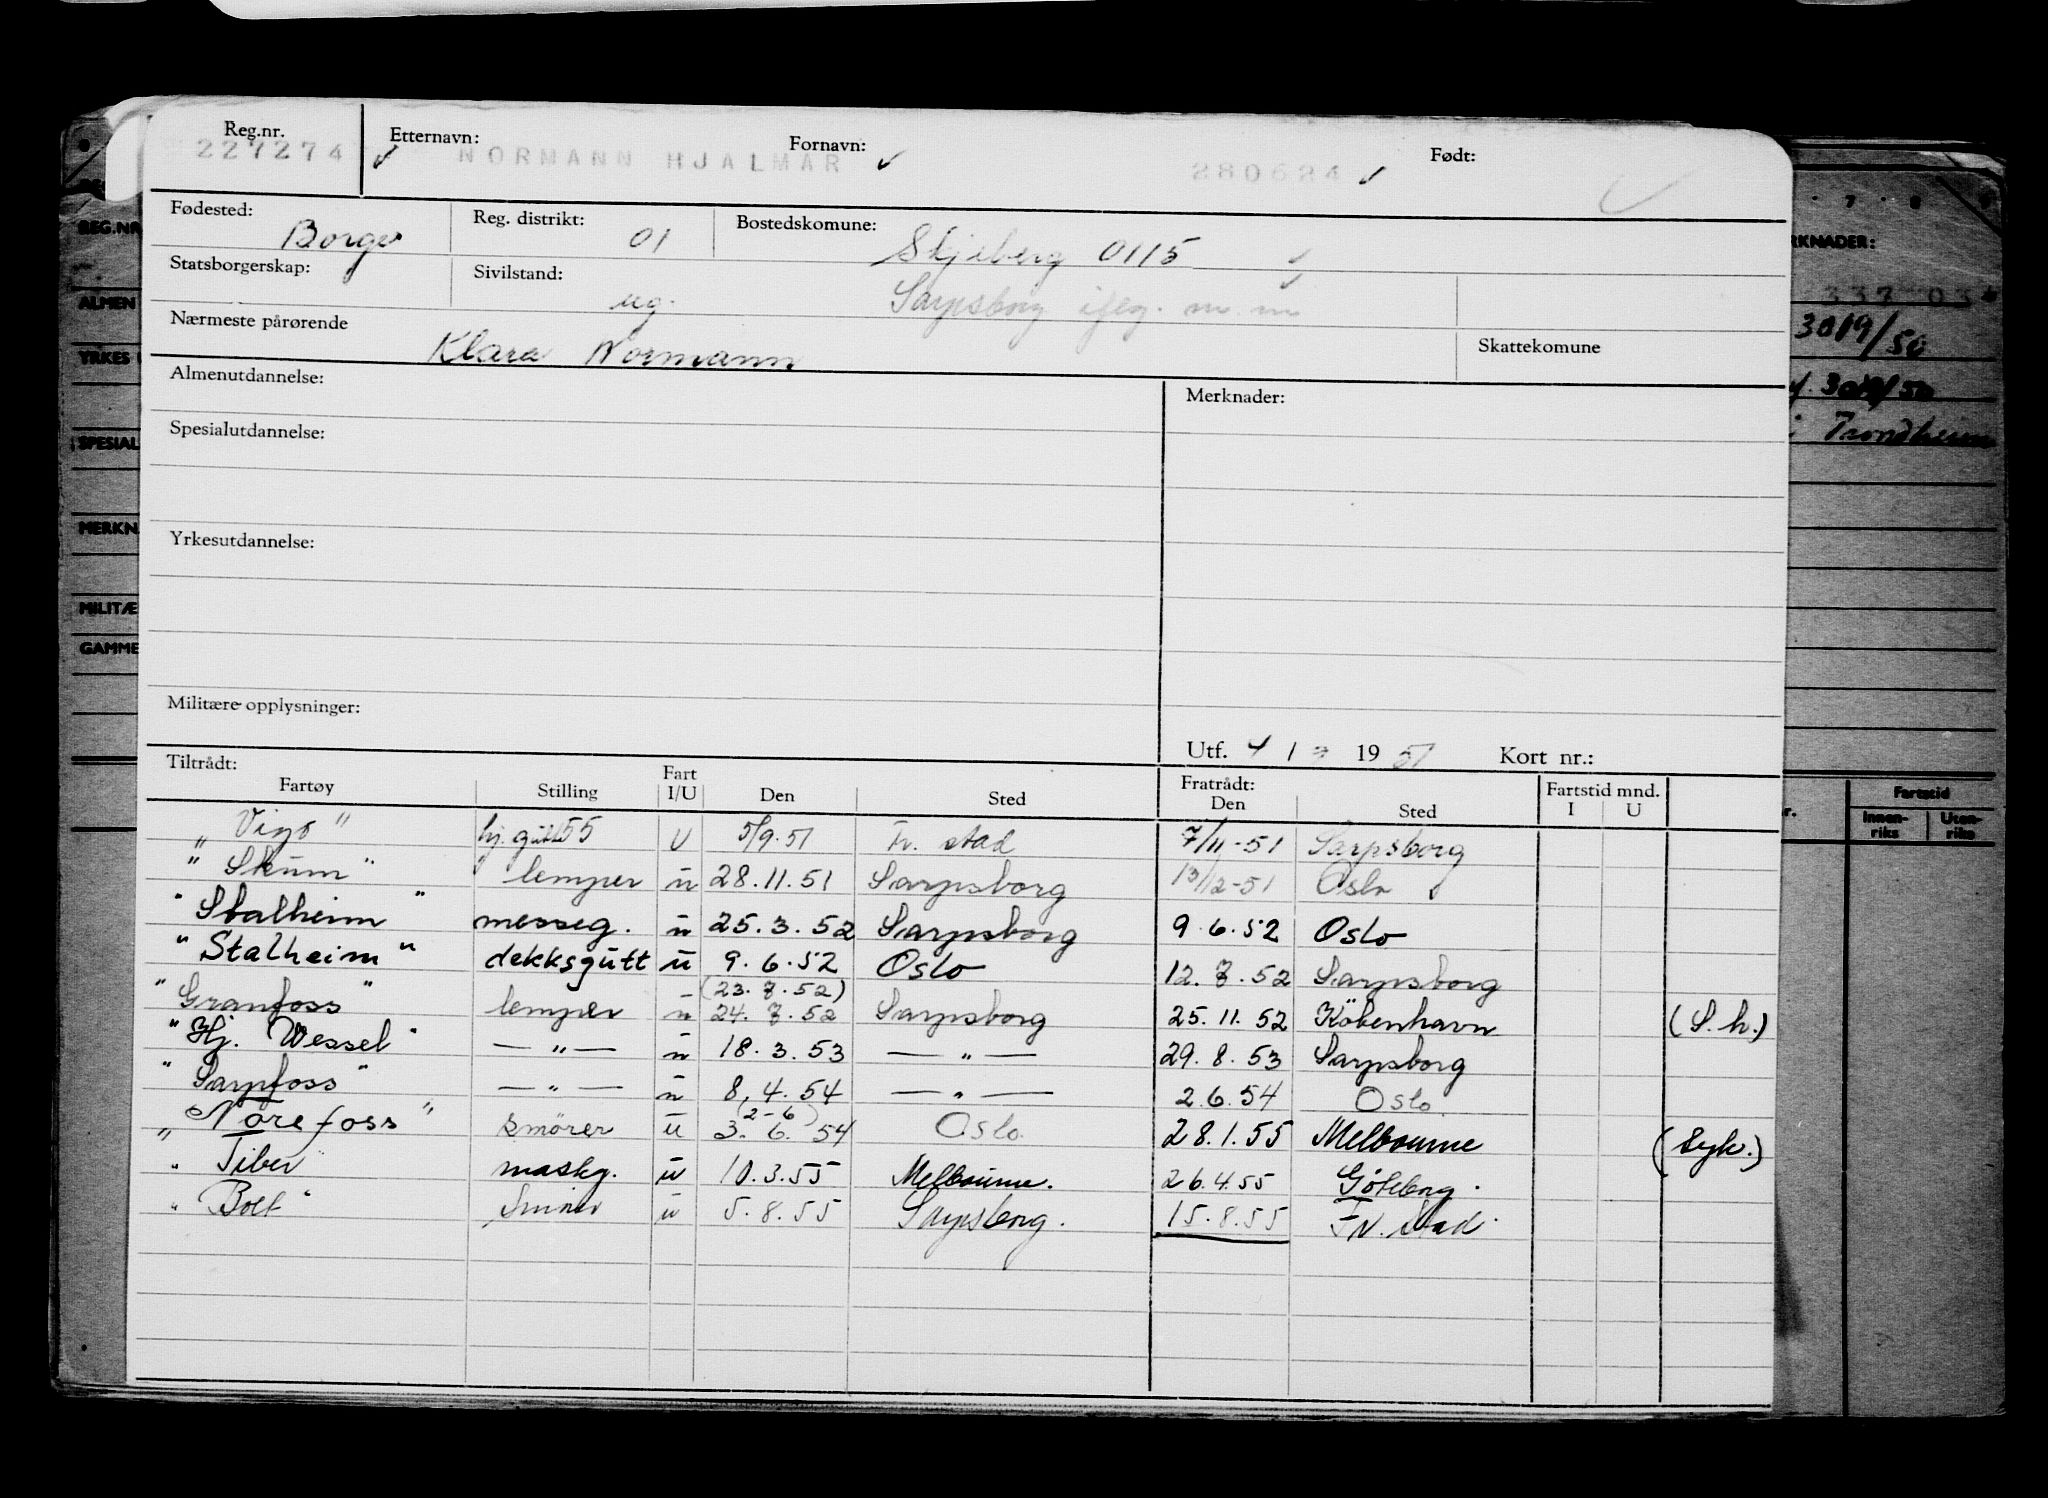 Reg.nr. Etternavn: Fornavn: Født:
227274 NORMANN HJALMAR 280624
Fødested: Borge Reg. distrikt: 01 Bostedskomune: Skjeberg 0115
Statsborgerskap: Sivilstand: ug. Sarpsborg
Nærmeste pårørende Klara Normann Skattekomune
Almenutdannelse: Merknader:
Spesialutdannelse:
Yrkesutdannelse:
Militære opplysninger:
Utf. 4 / 1951 Kort nr.:
Tiltrådt: Fratrådt: Fartstid mnd.
Fartøy Stilling Fart I/U Den Sted Den Sted I U
"Vigo" hj. gutt 55 U 5/9.51 Fr. stad 7/11-51 Sarpsborg
"Skum" lemper u 28.11.51 Sarpsborg 13/12-51 Oslo
"Stalheim" messeg. u 25.3.52 Sarpsborg 9.6.52 Oslo
"Stalheim" dekksgutt u 9.6.52 Oslo 12.7.52 Sarpsborg
(23.7.52)
"Granfoss" lemper u 24.7.52 Sarpsborg 25.11.52 København (S.h.)
"Hj. Wessel" —"— u 18.3.53 —"— 29.8.53 Sarpsborg
"Sarpfoss" —"— u 8.4.54 —"— 2.6.54 Oslo.
(2-6)
"Norefoss" smörer u 3.6.54 Oslo. 28.1.55 Melbourne (Syk.)
"Tiber" maskg. u 10.3.55 Melbourne. 26.4.55 Göteborg.
"Bolt" Smörer u 5.8.55 Sarpsborg. 15.8.55 Fr. stad.
7 8
REG.NR
ALMEN
YRKES
SPESIAL
MERKN
MILITÆ
GAMME
RKNADER:
337 03
30/9/50
30/9/50
i Trondheim
Fartstid
Innen-riks Uten-riks